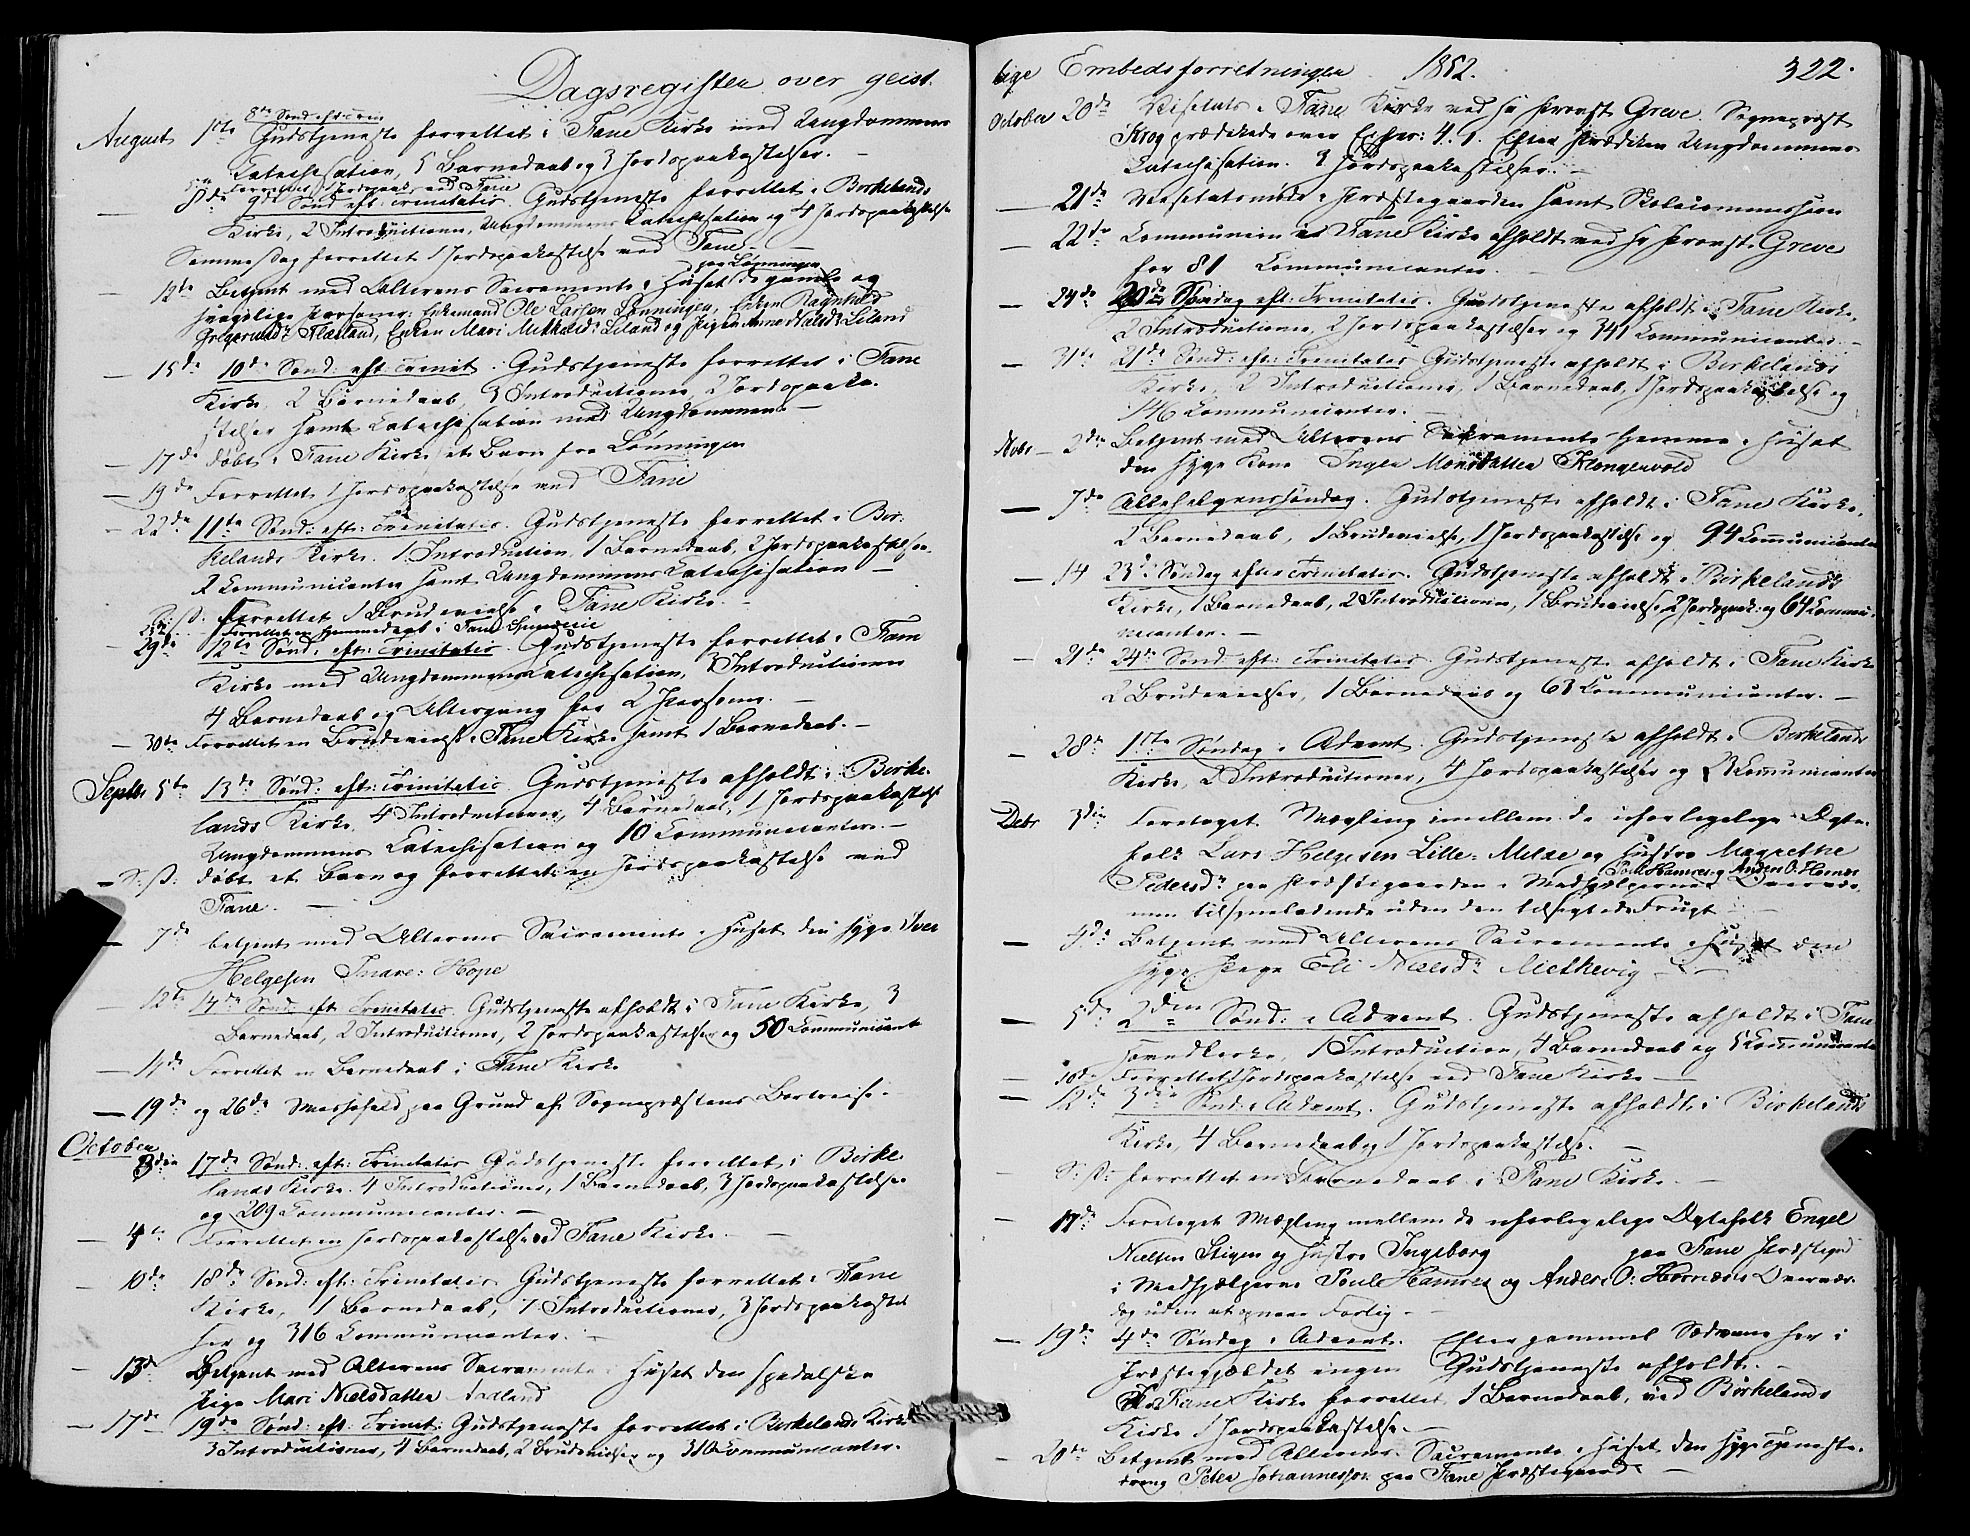 Dagsregister over geist.
August 1ste 8de Sønd: eft: Trin Gudstjeneste forrettet i Fane Kirke med Ungdommens
Catechisation, 5 Barnedaab og 3 Jordspaakastelser. —
Forrettet 1 Jordspaak. ved Fane
— 8de 9de Sønd eft: Trinitatis. Gudstjeneste forrettet i Birkelands
Kirke, 2 Introductioner, Ungdommens Catechisation og 4 Jordspaakastelse
Samme Dag forrettet 1 Jordspaakastelse ved Fane. —
— 12te Betjent med Alterens Sacramente i Huset paa Lønningen de gamle og
svagelige Personer: Enkemand Ole Larsen Lønningen, Enken Ragnhild
Gregoriusd: Flæsland, Enken Mari Michelsd: Liland og Pigen Anne Nilsd: Liland
— 15de 10de Sønd: eft: Trinit. Gudstjeneste forrettet i Fane
Kirke. 2 Barnedaab, 3 Introductioner, 2 Jordspaaka-
stelser samt Catechisation med Ungdommen. —
— 17de døbt i Fane Kirke et Barn fra Lønningen
— 19de Forrettet 1 Jordspaakastelse ved Fane
— 22de 11te Sønd: eft: Trinitatis. Gudstjeneste forrettet i Bir-
kelands Kirke. 1 Introduction, 1 Barnedaab, 2 Jordspaakastelser
2 Communicanter samt Ungdommens Catechisation —
Forrettet 1 Brudevielse i Fane Kirke. —
Forrettet en Hjemmedaab i Fane
— 29de 12te Sønd. eft: Trinitatis. Gudstjeneste forrettet i Fane
Kirke med Ungdommens Catechisation, 3 Introductioner
4 Barnedaab og Altergang for 2 Personer. —
— 30te Forrettet en Brudevielse i Fane Kirke samt 1 Barnedaab. —
Septbr. 5te 13de Sønd: eft: Trinitatis. Gudstjeneste afholdt i Birke-
lands Kirke. 4 Introductioner, 4 Barnedaab, 1 Jordspaakastelse
Ungdommens Catechisation og 10 Communicanter. —
— S: D: døbt et Barn og forrettet en Jordspaakastelse ved
Fane. —
— 7de betjent med Alterens Sacramente i Huset den syge Iver
Helgesen Hope
12te 14de Sønd. eft Trinitatis. Gudstjeneste afholdt i Fane Kirke, 3
Barnedaab, 2 Introductioner, 2 Jordspaakastelser og 50 Communicant
— 14de Forrettet en Barnedaab i Fane Kirke
— 19de og 26de Messefald paa Grund af Sognepræstens Bortreise.
October 3die 17de Sønd: eft: Trinitatis Gudstjeneste forrettet i Birke-
lands Kirke. 4 Introductioner, 1 Barnedaab, 3 Jordspaakastelser
og 209 Communicanter. —
— 4de Forrettet en Jordspaakastelse ved Fane Kirke. —
— 10de 18de Sønd: eft: Trinitatis Gudstjeneste forrettet i Fane
Kirke, 1 Barnedaab, 7 Introductioner, 3 Jordspaakastel-
ser og 316 Communicanter. —
— 13de Betjent med Alterens Sacramente i Huset den spedalske
Pige Mari Nielsdatter
— 17de 19de Sønd: eft: Trinit: Gudstjeneste forrettet i Birkelands Kirke
3 Introductioner, 4 Barnedaab, 2 Brudevielser og 310 Communicanter.
lige Embedsforretninger 1852. 322.
October 20de Visitats i Fane Kirke ved Hr Provst Greve. Sognepræst
Krog prædikede over Ephes: 4. 1. Efter Prædiken Ungdommens
Catechisation. 2 Jordspaakastelser. —
— 21de Visitatsmøde i Præstegaarden samt Skolecommission
— 22de Communion i Fane Kirke afholdt ved Hr Provst Greve
for 81 Communicanter. —
— 24de 20de Søndag eft: Trinitatis. Gudstjeneste afholdt i Fane Kirke.
2 Introductioner, 2 Jordspaakastelser og 341 Communicanter. —
— 31te 21de Sønd: eft: Trinitatis Gudstjeneste afholdt i Birkelands
Kirke, 2 Introductioner, 1 Barnedaab, 1 Jordspaakastelse og
146 Communicanter. —
Novbr — 2den Betjent med Alterens Sacramente hjemme i Huset
den syge Kone Inger Monsdatter Klongervold
— 7de Allehelgenssøndag. Gudstjeneste afholdt i Fane Kirke.
2 Barnedaab, 1 Brudevielse, 1 Jordspaakastelse og 94 Communicanter
— 14 23de Søndag efter Trinitatis. Gudstjeneste afholdt i Birkelands
Kirke, 1 Barnedaab, 2 Introductioner, 1 Brudevielse, 2 Jordspaak: og 64 Commu-
nicanter. —
— 21de 24de Sønd eft: Trinitatis. Gudstjeneste afholdt i Fane Kirke
2 Brudevielser, 1 Barnedaab og 63 Communicanter. —
— 28de 1ste Søndag i Advent. Gudstjeneste afholdt i Birkelands
Kirke, 2 Introductioner, 4 Jordspaakastelser og Communicanter
Debr 3die Foretaget Mægling imellem de uforligelige Ægte-
folk Lars Helgesen Lille-Milde og Hustru Magrethe
Pedersd: paa Præstegaarden i Medhjælpernes Poul Hamre og Anders O: Hornæs Overvær
men tilsyneladende uden den tilsigtede Frugt —
— 4de Betjent med Alterens Sacramente i Huset den
syge Pige Eli Nielsd: Mietkevig —
— 5de 2den Sønd: i Advent. Gudstjeneste afholdt i Fane
Hovedkirke, 1 Introduction, 4 Barnedaab og 5 Communicanter
— 10de Forrettet 1 Jordspaakastelse ved Fane Kirke —
— 12de 3die Sønd: i Advent. Gudstjeneste afholdt i Birkelands
Kirke, 4 Barnedaab og 1 Jordspaakastelse. —
S: D: forrettet en Barnedaab i Fane Kirke. —
— 17de Foretaget Mægling mellem de uforligelige Ægtefolk Engel
Nielsen Stigen og Hustru Ingeborg paa Fane Præstegrd
i Medhjælperne Poul Hamre og Anders O: Hornæs Overvær.
dog uden at opnaae Forlig. —
— 19de 4de Søndag i Advent. Efter gammel Sædvane her i
Præstegjældet ingen Gudstjeneste afholdt. —
Fane Kirke forrettet 1 Barnedaab, ved Birkelands
Kirke 1 Jordspaakastelse. —
— 20de Betjent med Alterens Sacramente i Huset den syge Tjeneste-
dreng Peter Johannessen paa Fane Præstegaard —